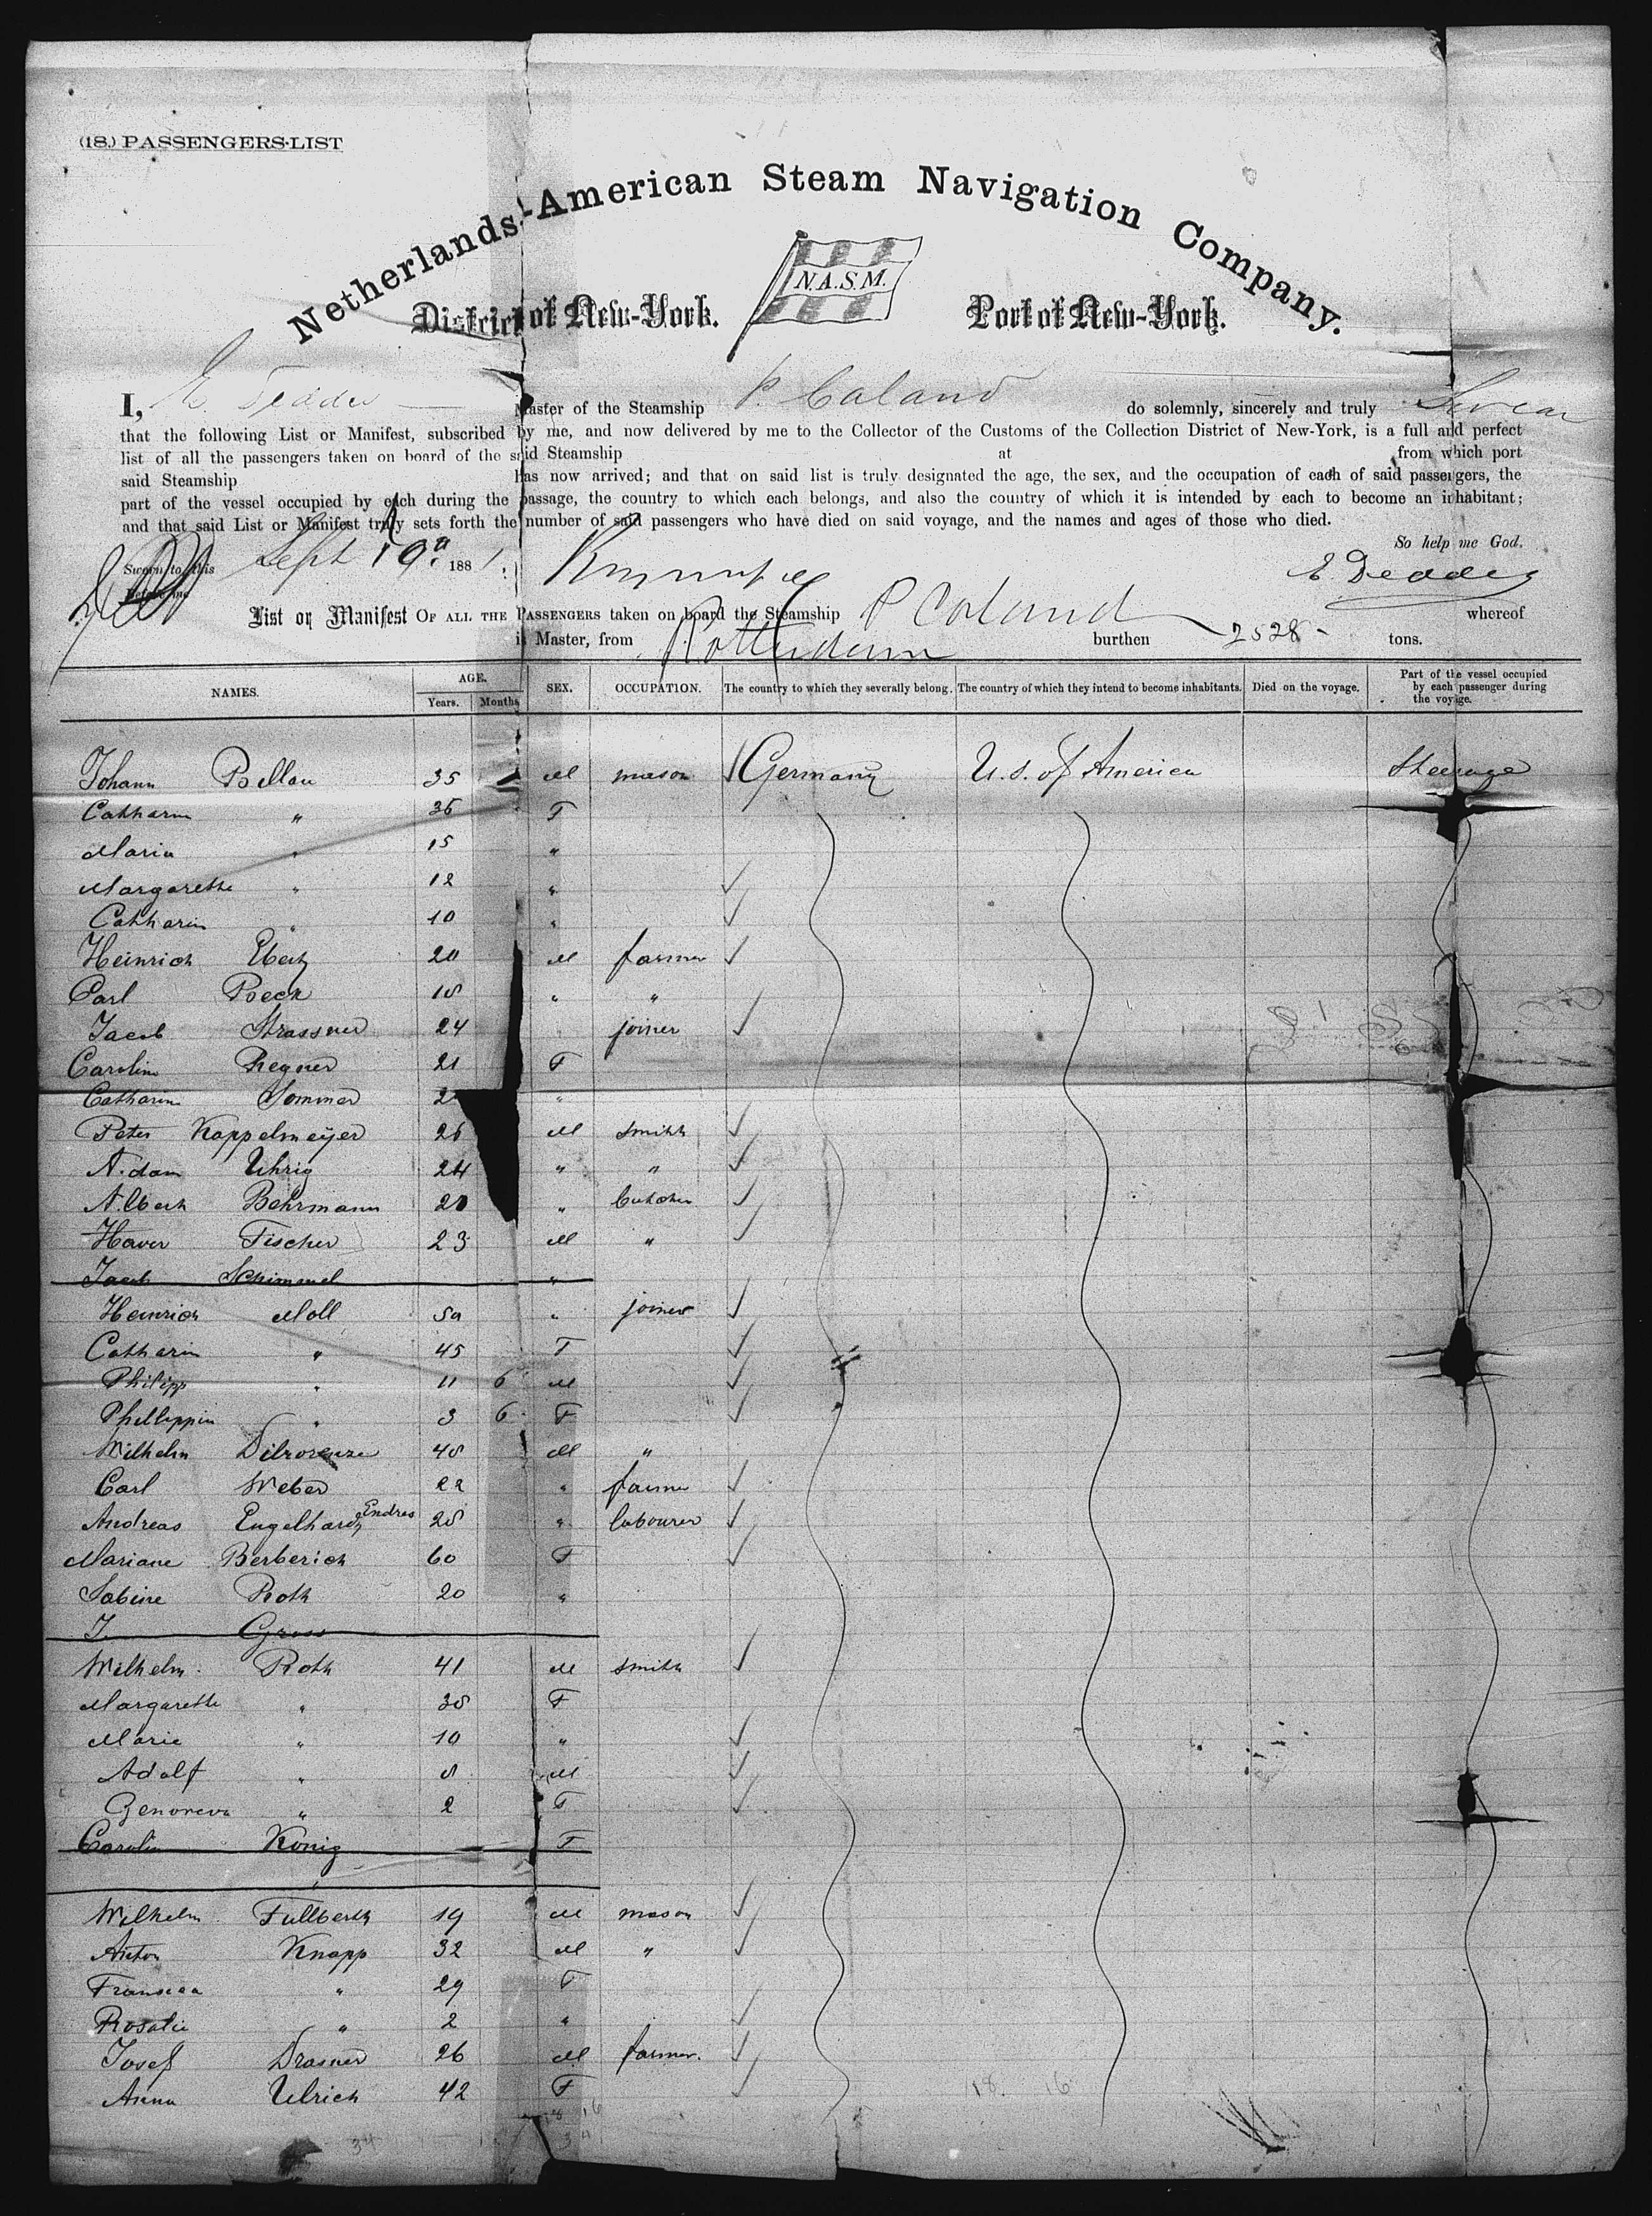 (18.) PASSENGERS-LIST
Netherlands-American Steam Navigation Company.
N.A.S.M.
District of New-York. Port of New-York.
I, E. Deddes Master of the Steamship P. Caland do solemnly, sincerely and truly Swear
that the following List or Manifest, subscribed by me, and now delivered by me to the Collector of the Customs of the Collection District of New-York, is a full and perfect
list of all the passengers taken on board of the said Steamship at from which port
said Steamship has now arrived; and that on said list is truly designated the age, the sex, and the occupation of each of said passengers, the
part of the vessel occupied by each during the passage, the country to which each belongs, and also the country of which it is intended by each to become an inhabitant;
and that said List or Manifest truly sets forth the number of said passengers who have died on said voyage, and the names and ages of those who died.
So help me God.
Sworn to this Sept 19. 1881. E. Deddes
Before me
List or Manifest OF ALL THE PASSENGERS taken on board the Steamship P Caland whereof
is Master, from Rotterdam burthen 2528 tons.
NAMES. AGE. SEX. OCCUPATION. The country to which they severally belong. The country of which they intend to become inhabitants. Died on the voyage. Part of the vessel occupied by each passenger during the voyage.
Years. Months
Johann Bellau 35 M mason Germany U.S. of America Steerage
Catharin " 35 F
Maria " 15 "
Margarethe " 12 "
Catharin " 10 "
Heinrich Ebertz 20 M farmer
Carl Beck 18 " "
Jacob Strassner 24 joiner
Carolin Regner 21 F
Catharine Sommer 2 "
Peter Kappelmeijer 26 M smith
Adam Uhrig 24 " "
Albert Behrmann 20 " butcher
Haver Fischer 23 M "
Jacob Schimmel "
Heinrich Moll 50 " joiner
Catharin " 45 F
Philipp " 11 6 M
Phillippin " 3 6 F
Wilhelm 48 M "
Carl Weber 22 " farmer
Andreas Engelhardt Endres 28 " labourer
Mariane Berberich 60 F
Sabine Roth 20 "
J. Gross
Wilhelm Roth 41 M smith
Margarethe " 38 F
Marie " 10 "
Adolf " 8 M
Genoveva " 2 F
Carolin König F
Wilhelm Fullberth 19 M mason
Anton Knapp 32 M "
Fransisca " 29 F
Rosalie " 2 "
Josef Drasner 26 M farmer.
Anna Ulrich 42 F
18 16
34